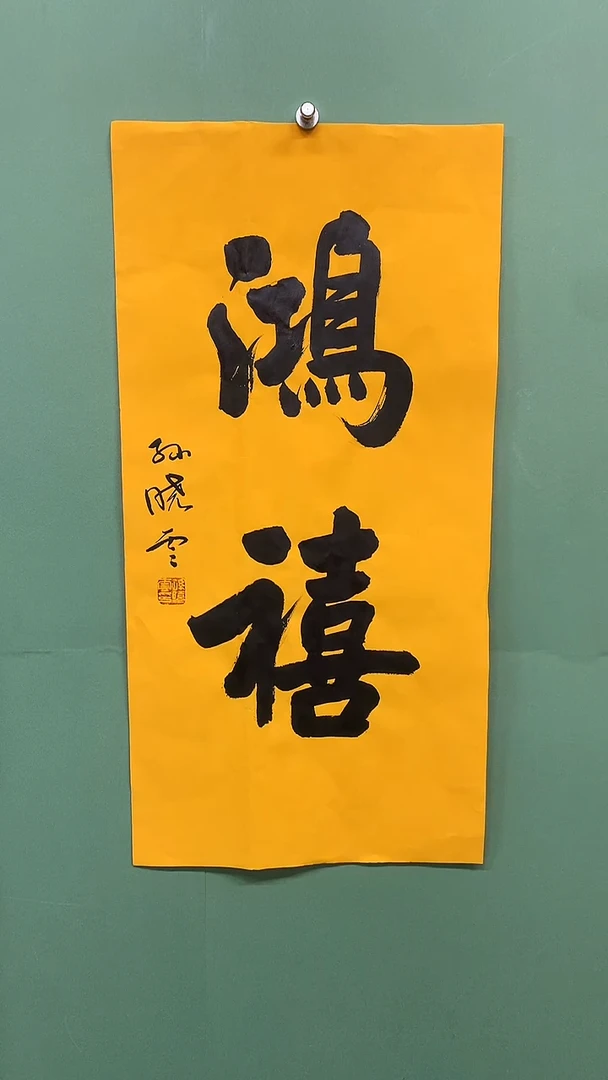 鴻禧
孙晓雲